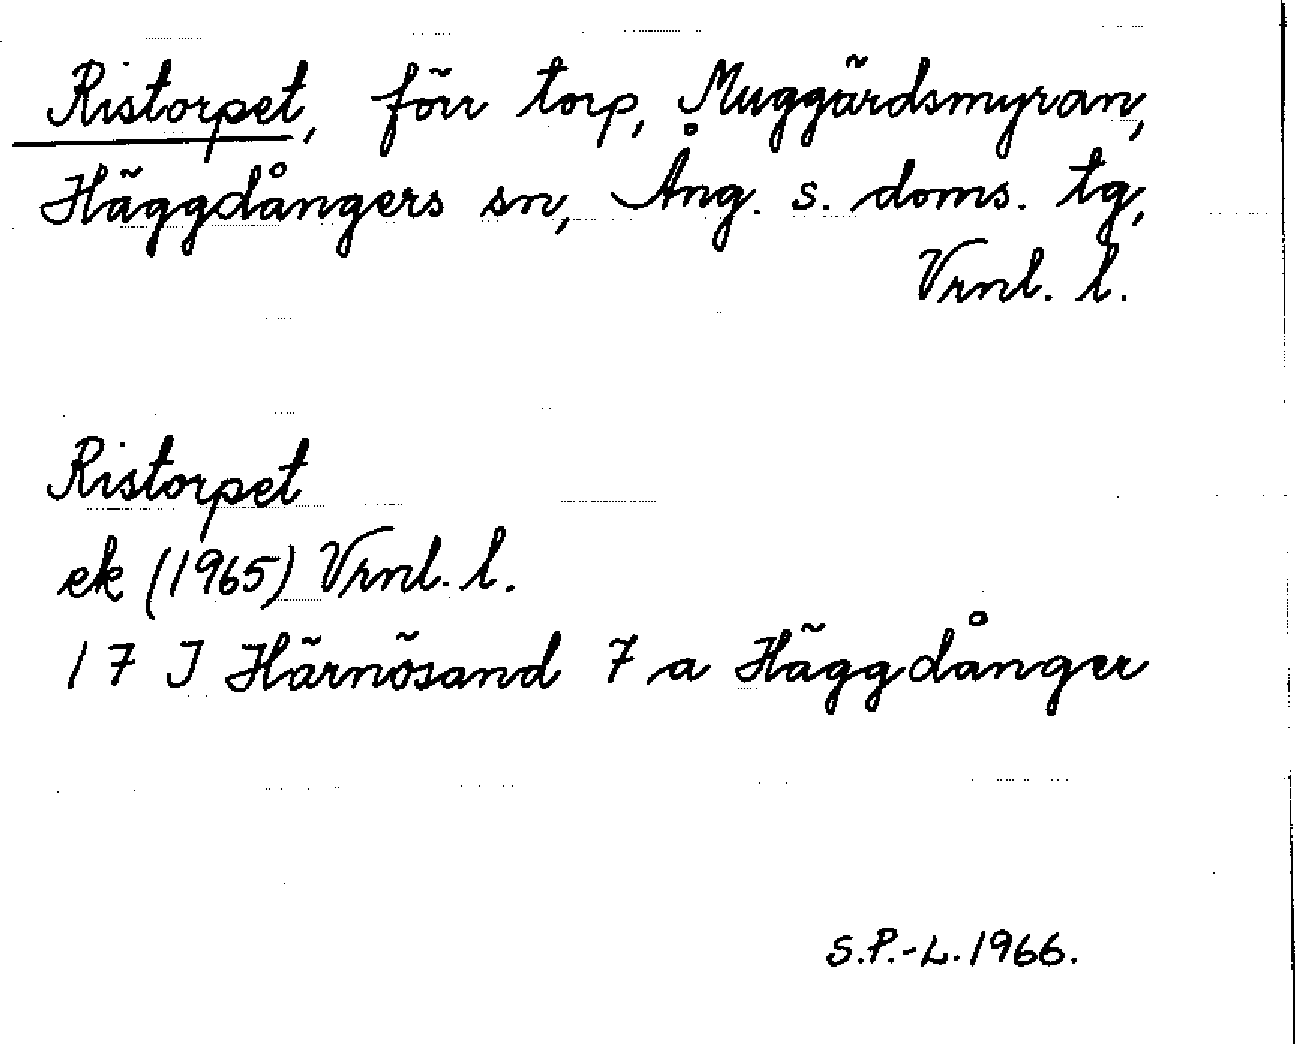 Ristorpet, förr torp, Muggärdsmyran,
Häggdångers sn, Ång. s. doms. tg,
Vrnl. l.
Ristorpet
ek (1965) Vrnl. l.
17 I Härnösand 7 a Häggdånger
S.P.-L. 1966.